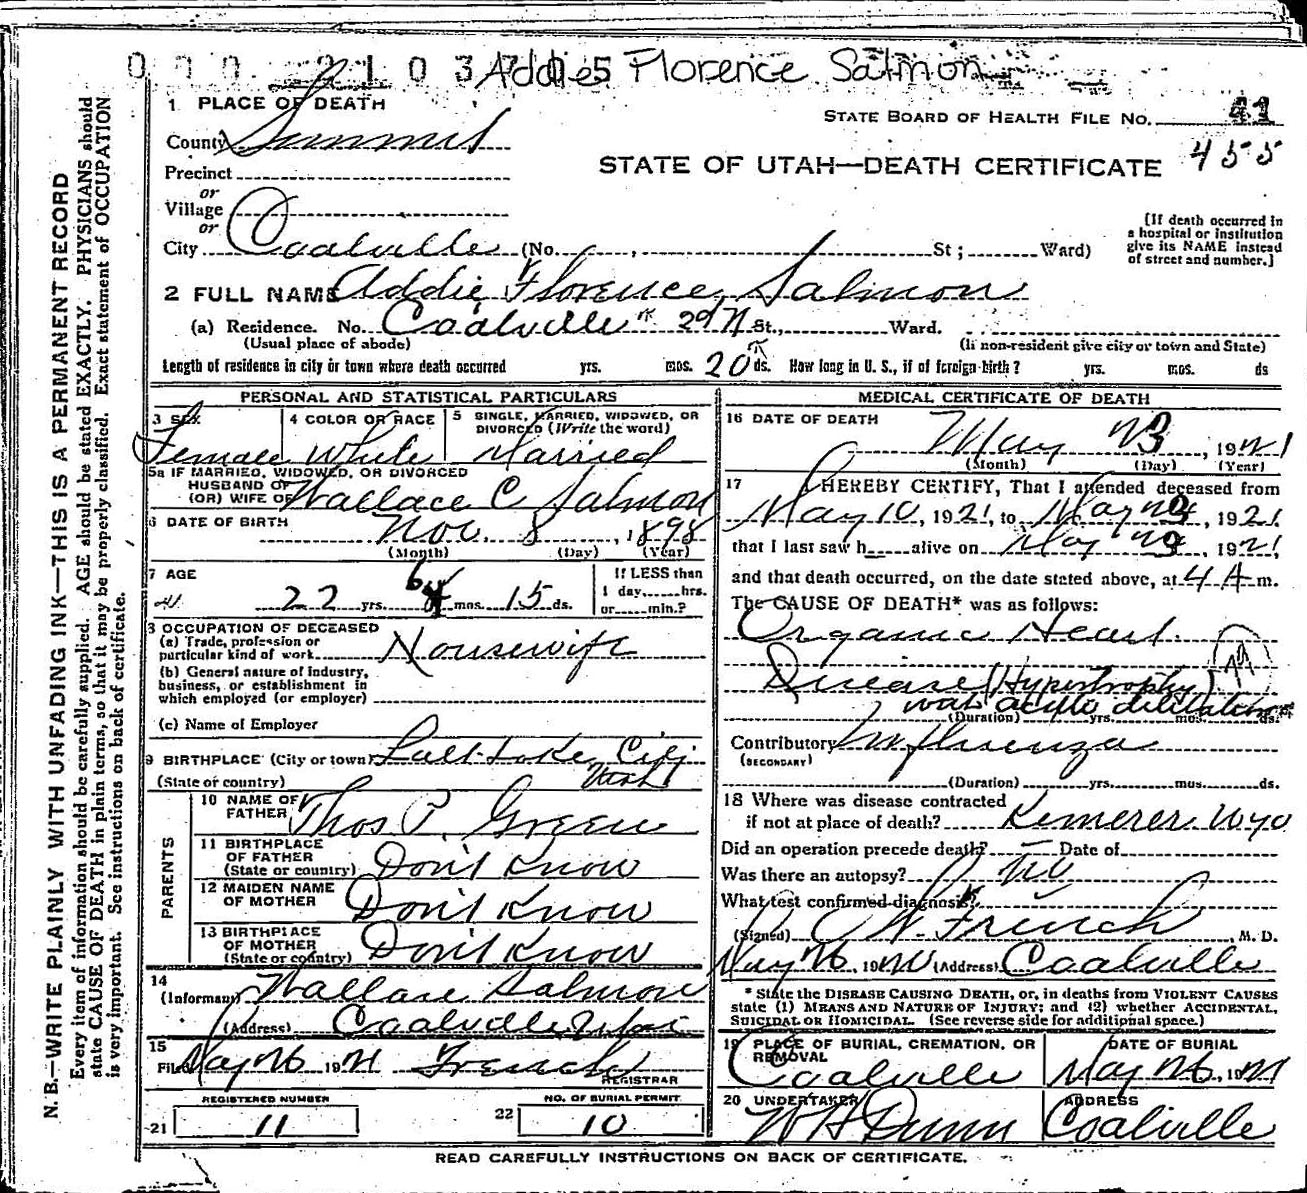 Addie Florence Salmon
1 PLACE OF DEATH
STATE BOARD OF HEALTH FILE NO. 41
County Summit
STATE OF UTAH—DEATH CERTIFICATE 455
Precinct
or
Village
or
City Coalville (No. , St; Ward)
[If death occurred in
a hospital or institution
give its NAME instead
of street and number.]
2 FULL NAME Addie Florence Salmon
(a) Residence. No. Coalville St., Ward.
(Usual place of abode) (If non-resident give city or town and State)
Length of residence in city or town where death occurred yrs. mos. 20 ds. How long in U. S., if of foreign birth? yrs. mos. ds
PERSONAL AND STATISTICAL PARTICULARS
3 SEX Female
4 COLOR OR RACE White
5 SINGLE, MARRIED, WIDOWED, OR
DIVORCED (Write the word) Married
5a IF MARRIED, WIDOWED, OR DIVORCED
HUSBAND OF
(OR) WIFE OF Wallace C Salmon
6 DATE OF BIRTH Nov. 8, 1898
(Month) (Day) (Year)
7 AGE
22 yrs. 6 mos. 15 ds.
If LESS than
1 day, hrs.
or min.?
8 OCCUPATION OF DECEASED
(a) Trade, profession or
particular kind of work Housewife
(b) General nature of industry,
business, or establishment in
which employed (or employer)
(c) Name of Employer
9 BIRTHPLACE (City or town) Salt Lake City
(State or country) Utah
PARENTS
10 NAME OF
FATHER Thos P. Green
11 BIRTHPLACE
OF FATHER
(State or country) Don't Know
12 MAIDEN NAME
OF MOTHER Don't Know
13 BIRTHPLACE
OF MOTHER
(State or country) Don't Know
14
(Informant) Wallace Salmon
(Address) Coalville Utah
15
Filed May 26 1921 French
REGISTRAR
REGISTERED NUMBER
21 11
NO. OF BURIAL PERMIT
22 10
MEDICAL CERTIFICATE OF DEATH
16 DATE OF DEATH May 23, 1921
(Month) (Day) (Year)
17 I HEREBY CERTIFY, That I attended deceased from
May 10, 1921, to May 23, 1921
that I last saw h alive on May 23, 1921,
and that death occurred, on the date stated above, at 4 A m.
The CAUSE OF DEATH* was as follows:
Organic Heart
Disease (Hypertrophy)
was acute dilitation
(Duration) yrs. mos. ds.
Contributory Influenza
(SECONDARY)
(Duration) yrs. mos. ds.
18 Where was disease contracted
if not at place of death? Kemerer Wyo
Did an operation precede death? — Date of
Was there an autopsy? No
What test confirmed diagnosis?
(Signed) W. French, M. D.
May 26, 1921 (Address) Coalville
* State the DISEASE CAUSING DEATH, or, in deaths from VIOLENT CAUSES
state (1) MEANS AND NATURE OF INJURY; and (2) whether ACCIDENTAL,
SUICIDAL OR HOMICIDAL. (See reverse side for additional space.)
19 PLACE OF BURIAL, CREMATION, OR
REMOVAL
Coalville
DATE OF BURIAL
May 26, 1921
20 UNDERTAKER
W H Dunn
ADDRESS
Coalville
READ CAREFULLY INSTRUCTIONS ON BACK OF CERTIFICATE.
N. B.—WRITE PLAINLY WITH UNFADING INK—THIS IS A PERMANENT RECORD
Every item of information should be carefully supplied. AGE should be stated EXACTLY. PHYSICIANS should
state CAUSE OF DEATH in plain terms, so that it may be properly classified. Exact statement of OCCUPATION
is very important. See instructions on back of certificate.